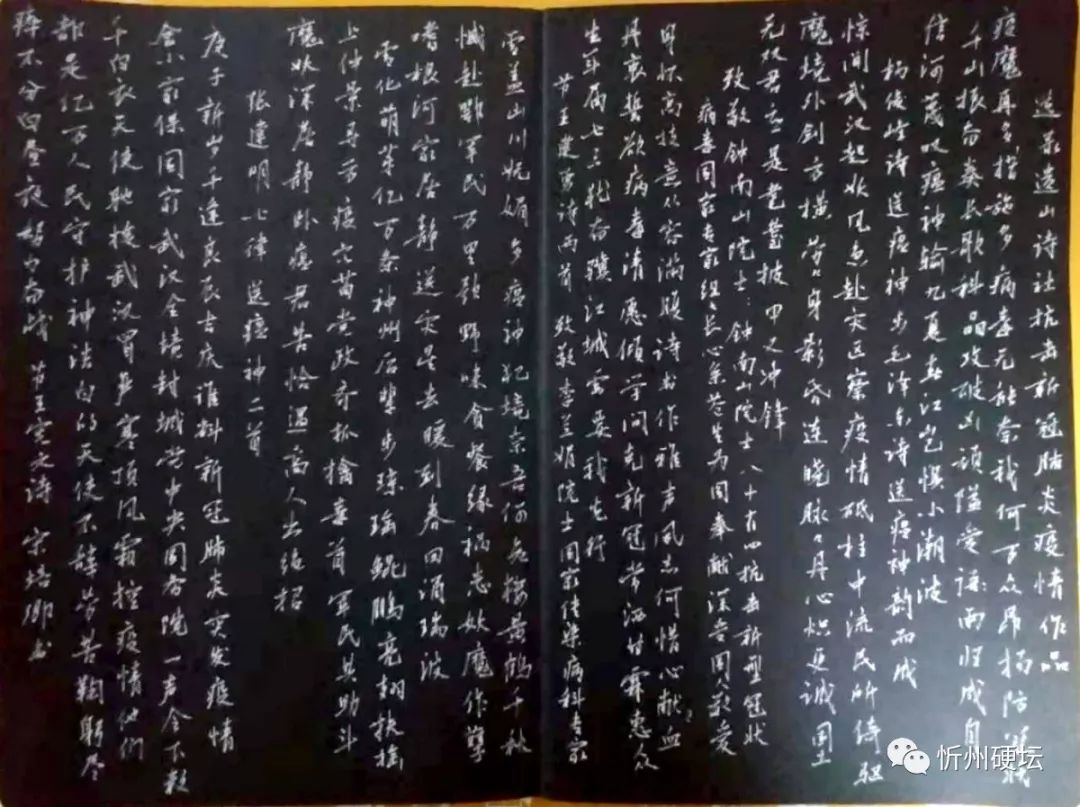 选录遗山诗社抗击新冠肺炎疫情作品
疫魔耳多措施多病毒无能奈我何万众昂扬防
千山振奋凑长歌科品攻破凶顽隘爱语雨归成自
信河蔑叹瘟神输九夏春江岂惧小潮波
杨俊峰诗送瘟神步毛泽东诗送瘟神韵而成
惊闻武汉起妖风急赴灾区察疫情砥柱中流民所倚驱
魔境外剑方横劳身影昏连晓脉々丹心炽更诚国士
无双君亦是耄耋披甲又冲锋
致敬钟南山院士：钟南山院士八十有四抗击新型冠状
病毒国家专家组长心系苍生为国奉献深受国家爱
胸怀高挂意从容满腹诗书作雅声风华何惜心献血
丹衷誓欲病毒清愿倾学问克新冠常洒甘霖惠众
生年届七三犹存骥江城需要我先行
节至 诗两首 致敬李兰娟院士国家传染病科专家
雪盖山川妩媚多瘟神犯境奈吾何急援黄鹤千秋
憾赴鄂军民万里歌野味贪餐缘祸患妖魔作孽
嗜根河家居静送灾星去暖到春回涌瑞波
雪化萌芽亿万条神州后辈步琼瑶鲲鹏亮翅扶摇
上仲景寻方瘟穴苗党政齐抓擒毒首军民共助斗
魔妖深居静卧瘟君苦恰遇高人出绝招
张建明七律送瘟神二首
庚子新岁千逢良辰吉庆谁料新冠肺炎突发疫情
舍小家保国家武汉全境封城党中央国务院一声令下数
千白衣天使驰援武汉冒严寒顶风霜控疫情他们
都是亿万人民守护神洁白的天使不辞劳苦鞠躬尽
瘁不分白昼夜努力奋战 节至定文诗 宋培卿书
忻州硬坛